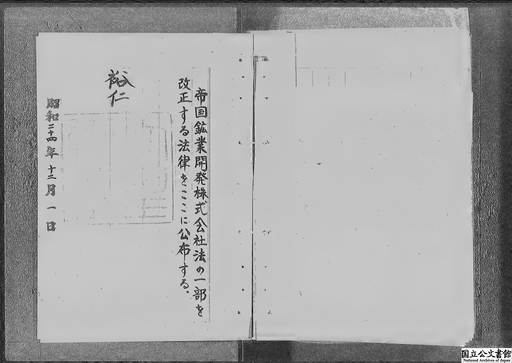 帝国鉱業開発株式会社法の一部を
改正する法律をここに公布する。
裕仁
昭和二十四年十二月一日
国立公文書館
National Archives of Japan